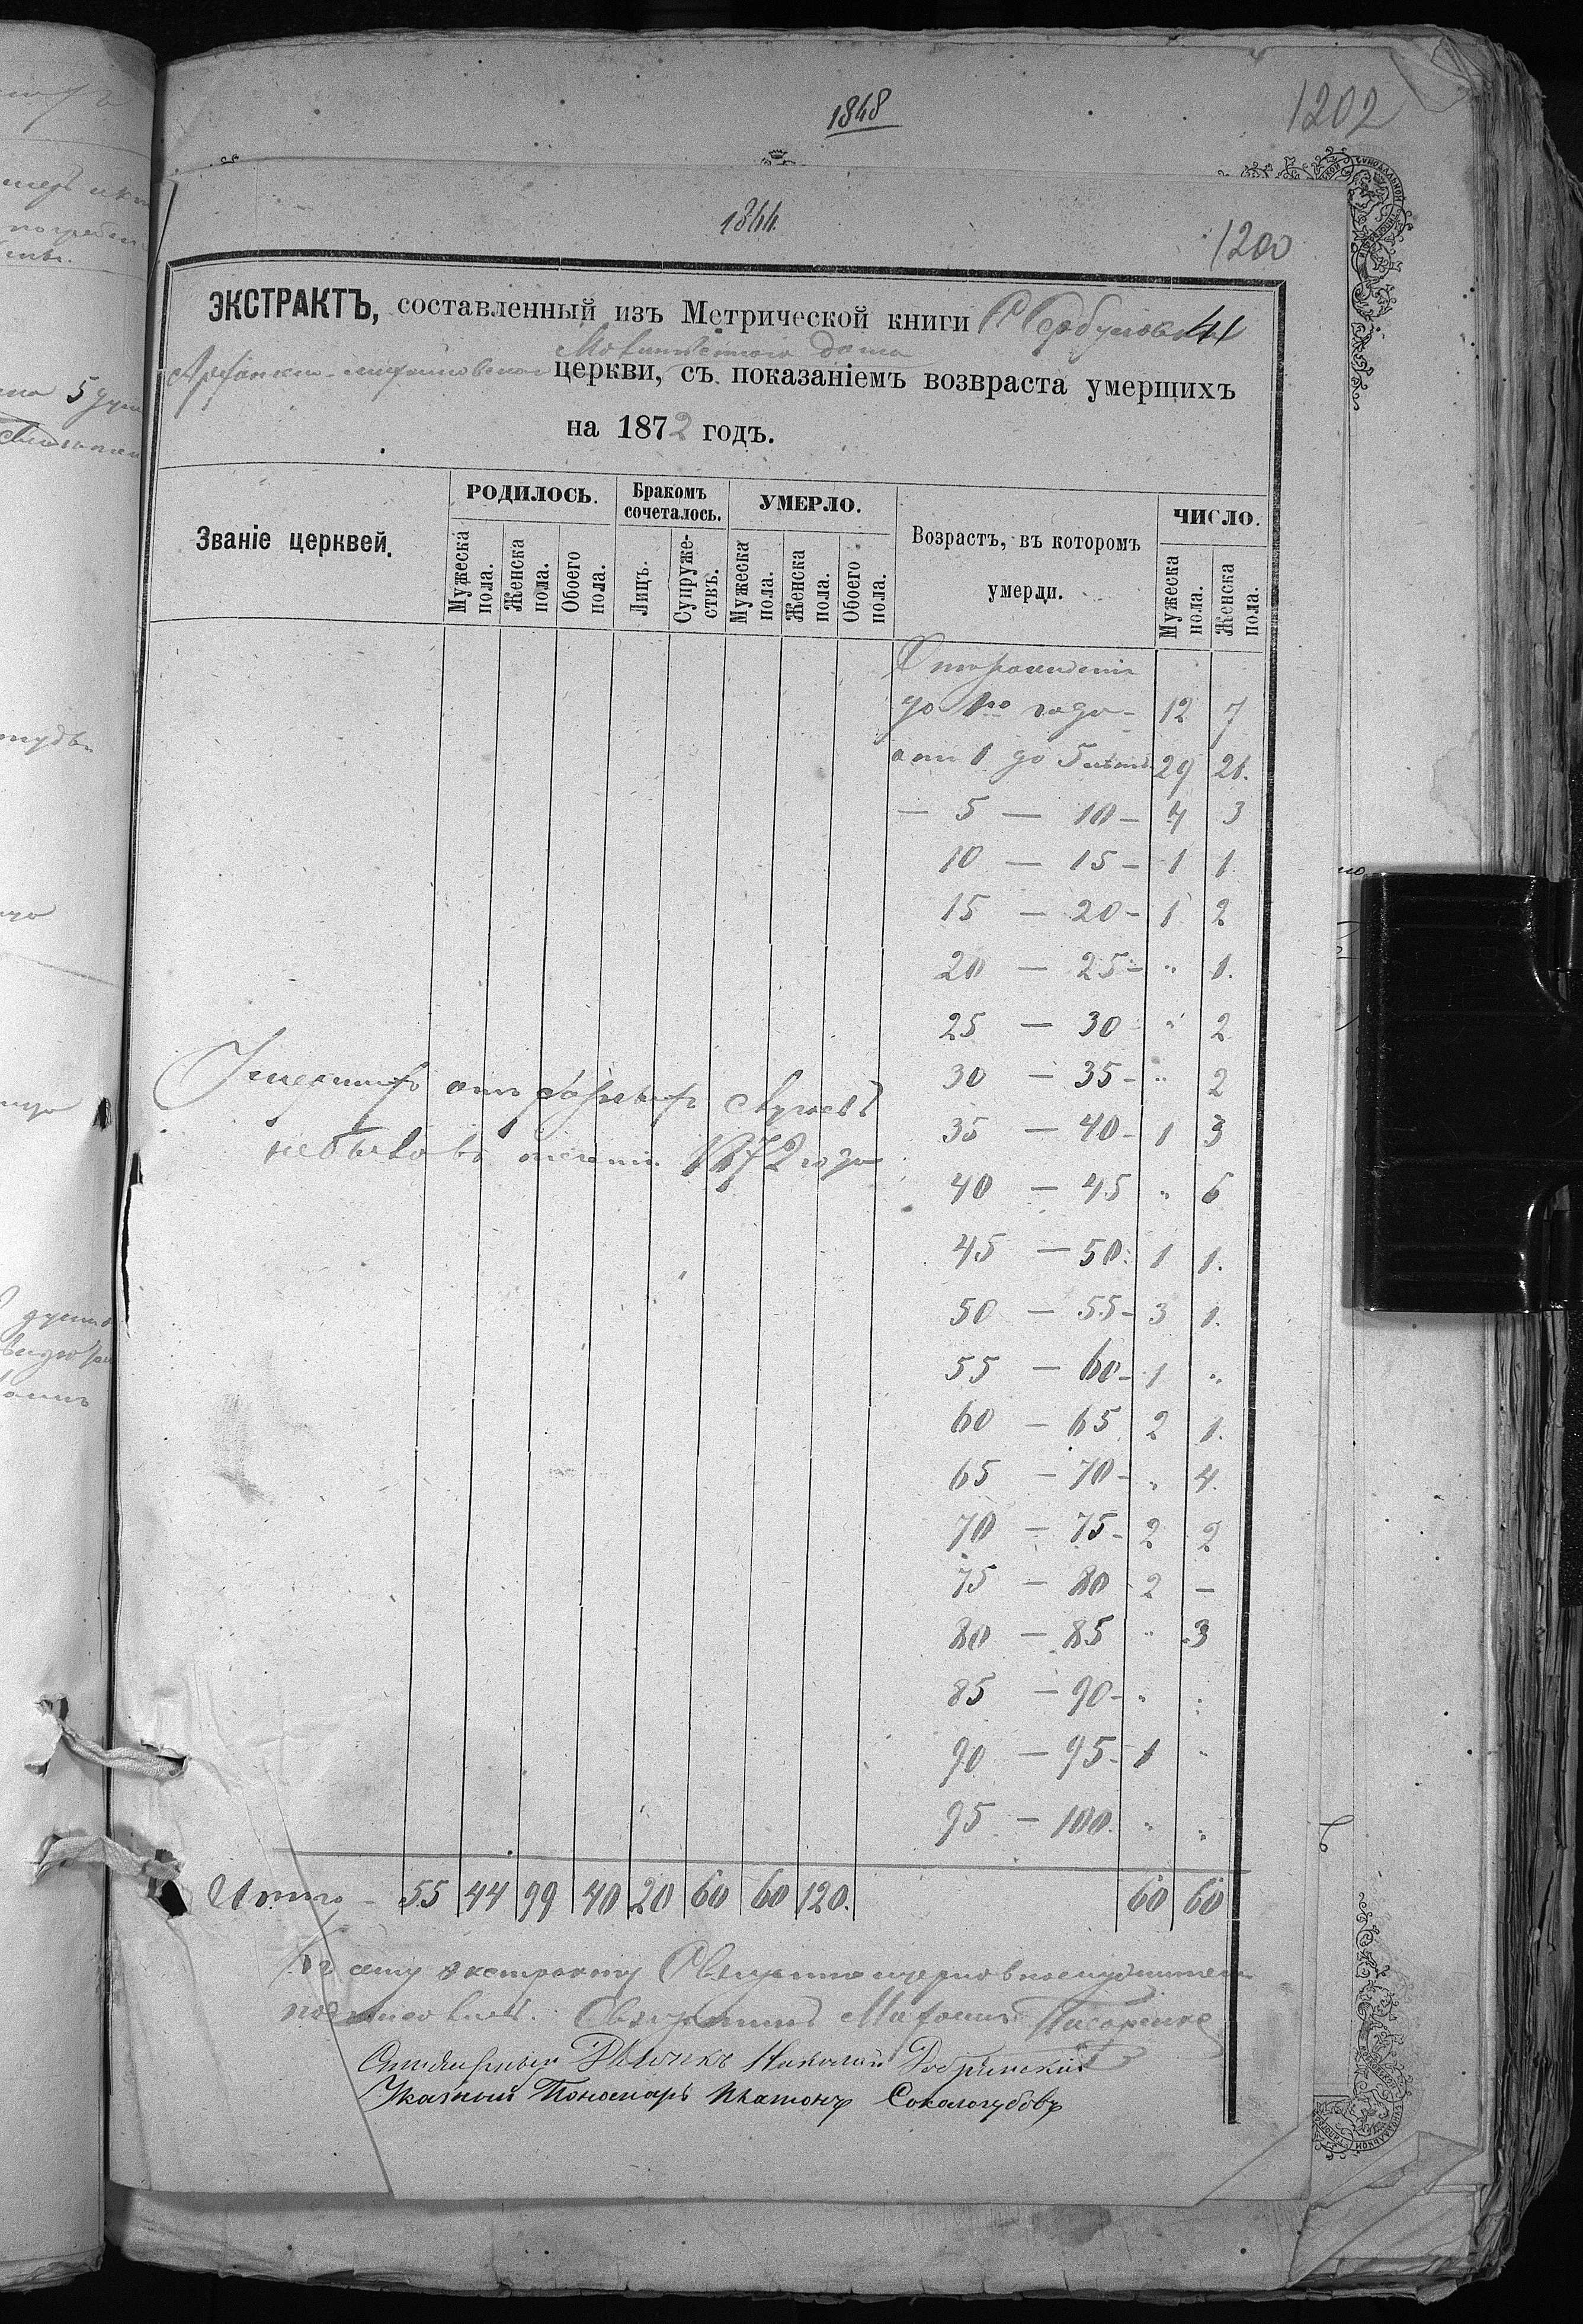 1848
1202
1844
1200
ЭКСТРАКТЪ, составленный изъ Метрической книги
41
Молитвеннаго дома
церкви, съ показаніемъ возвраста умершихъ
на 1872 годъ.
Званіе церквей.
РОДИЛОСЬ.
Мужеска пола.
Женска пола.
Обоего пола.
Бракомъ сочеталось.
Лицъ.
Супруже-ствъ.
УМЕРЛО.
Мужеска пола.
Женска пола.
Обоего пола.
Возрастъ, въ которомъ умерли.
ЧИСЛО.
Мужеска пола.
Женска пола.
Отъ рожденія
до 1го года - 12 7
отъ 1 до 5 лѣтъ 29 21.
— 5 — 10 - 4 3
10 — 15 - 1 1
15 — 20 - 1 2
20 — 25 - " 1.
25 — 30 " 2
30 — 35 - " 2
35 — 40 - 1 3
40 — 45 " 6
45 — 50. 1 1.
50 — 55 - 3 1.
55 — 60 - 1 "
60 — 65 2 1.
65 — 70 - " 4.
70 — 75 - 2 2
75 — 80 2 —
80 — 85 " 3
85 — 90 - " "
90 — 95 - 1 "
95 — 100. " "
Умершихъ отъ разныхъ случаевъ
небыло въ теченіи 1872 года
Итого - 55 44 99 40 20 60 60 120. 60 60
Къ сему экстракту Священно церковнослужители
подписались. Священникъ
Дьячекъ Николай Добрынскій
Указный Пономарь Платонъ Сокологубовъ